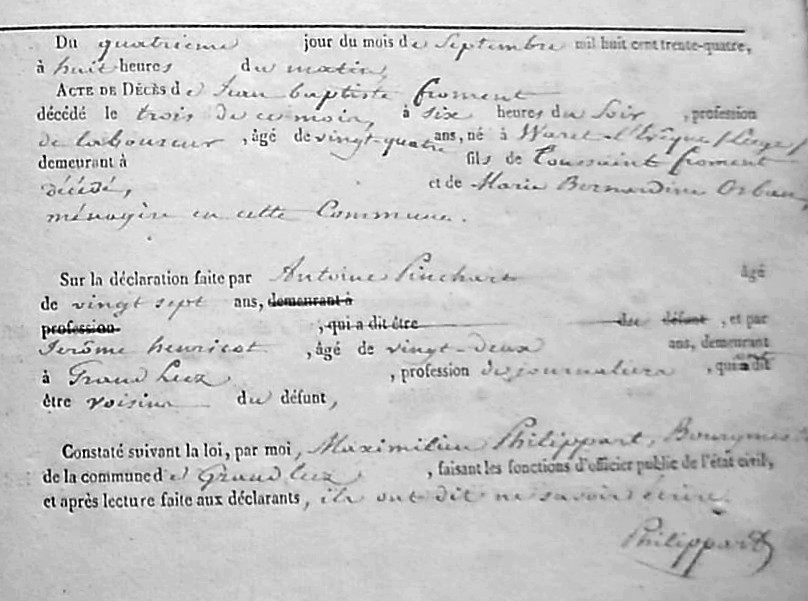 Du quatrieme jour du mois de Septembre mil huit cent trente-quatre,
à huit heures du matin,
ACTE DE DÉCÈS de Jean baptiste froment
décédé le trois de ce mois, à six heures du Soir, profession
de laboureur, âgé de vingt-quatre ans, né à Waret-l'Evêque (Liege)
demeurant à fils de Toussaint froment
décédé, et de Marie Bernardine Orban,
ménagère en cette Commune.
Sur la déclaration faite par Antoine Pinchart âgé
de vingt sept ans, demeurant à
profession , qui a dit être du défunt , et par
Jerôme henricot, âgé de vingt-deux ans, demeurant
à Grand Leez, profession de journaliers, qui a dit
être voisins du défunt,
Constaté suivant la loi, par moi, Maximilien Philippart, Bourgmes
de la commune de Grand leez, faisant les fonctions d'officier public de l'état civil,
et après lecture faite aux déclarants, ils ont dit ne savoir écrire.
Philippart